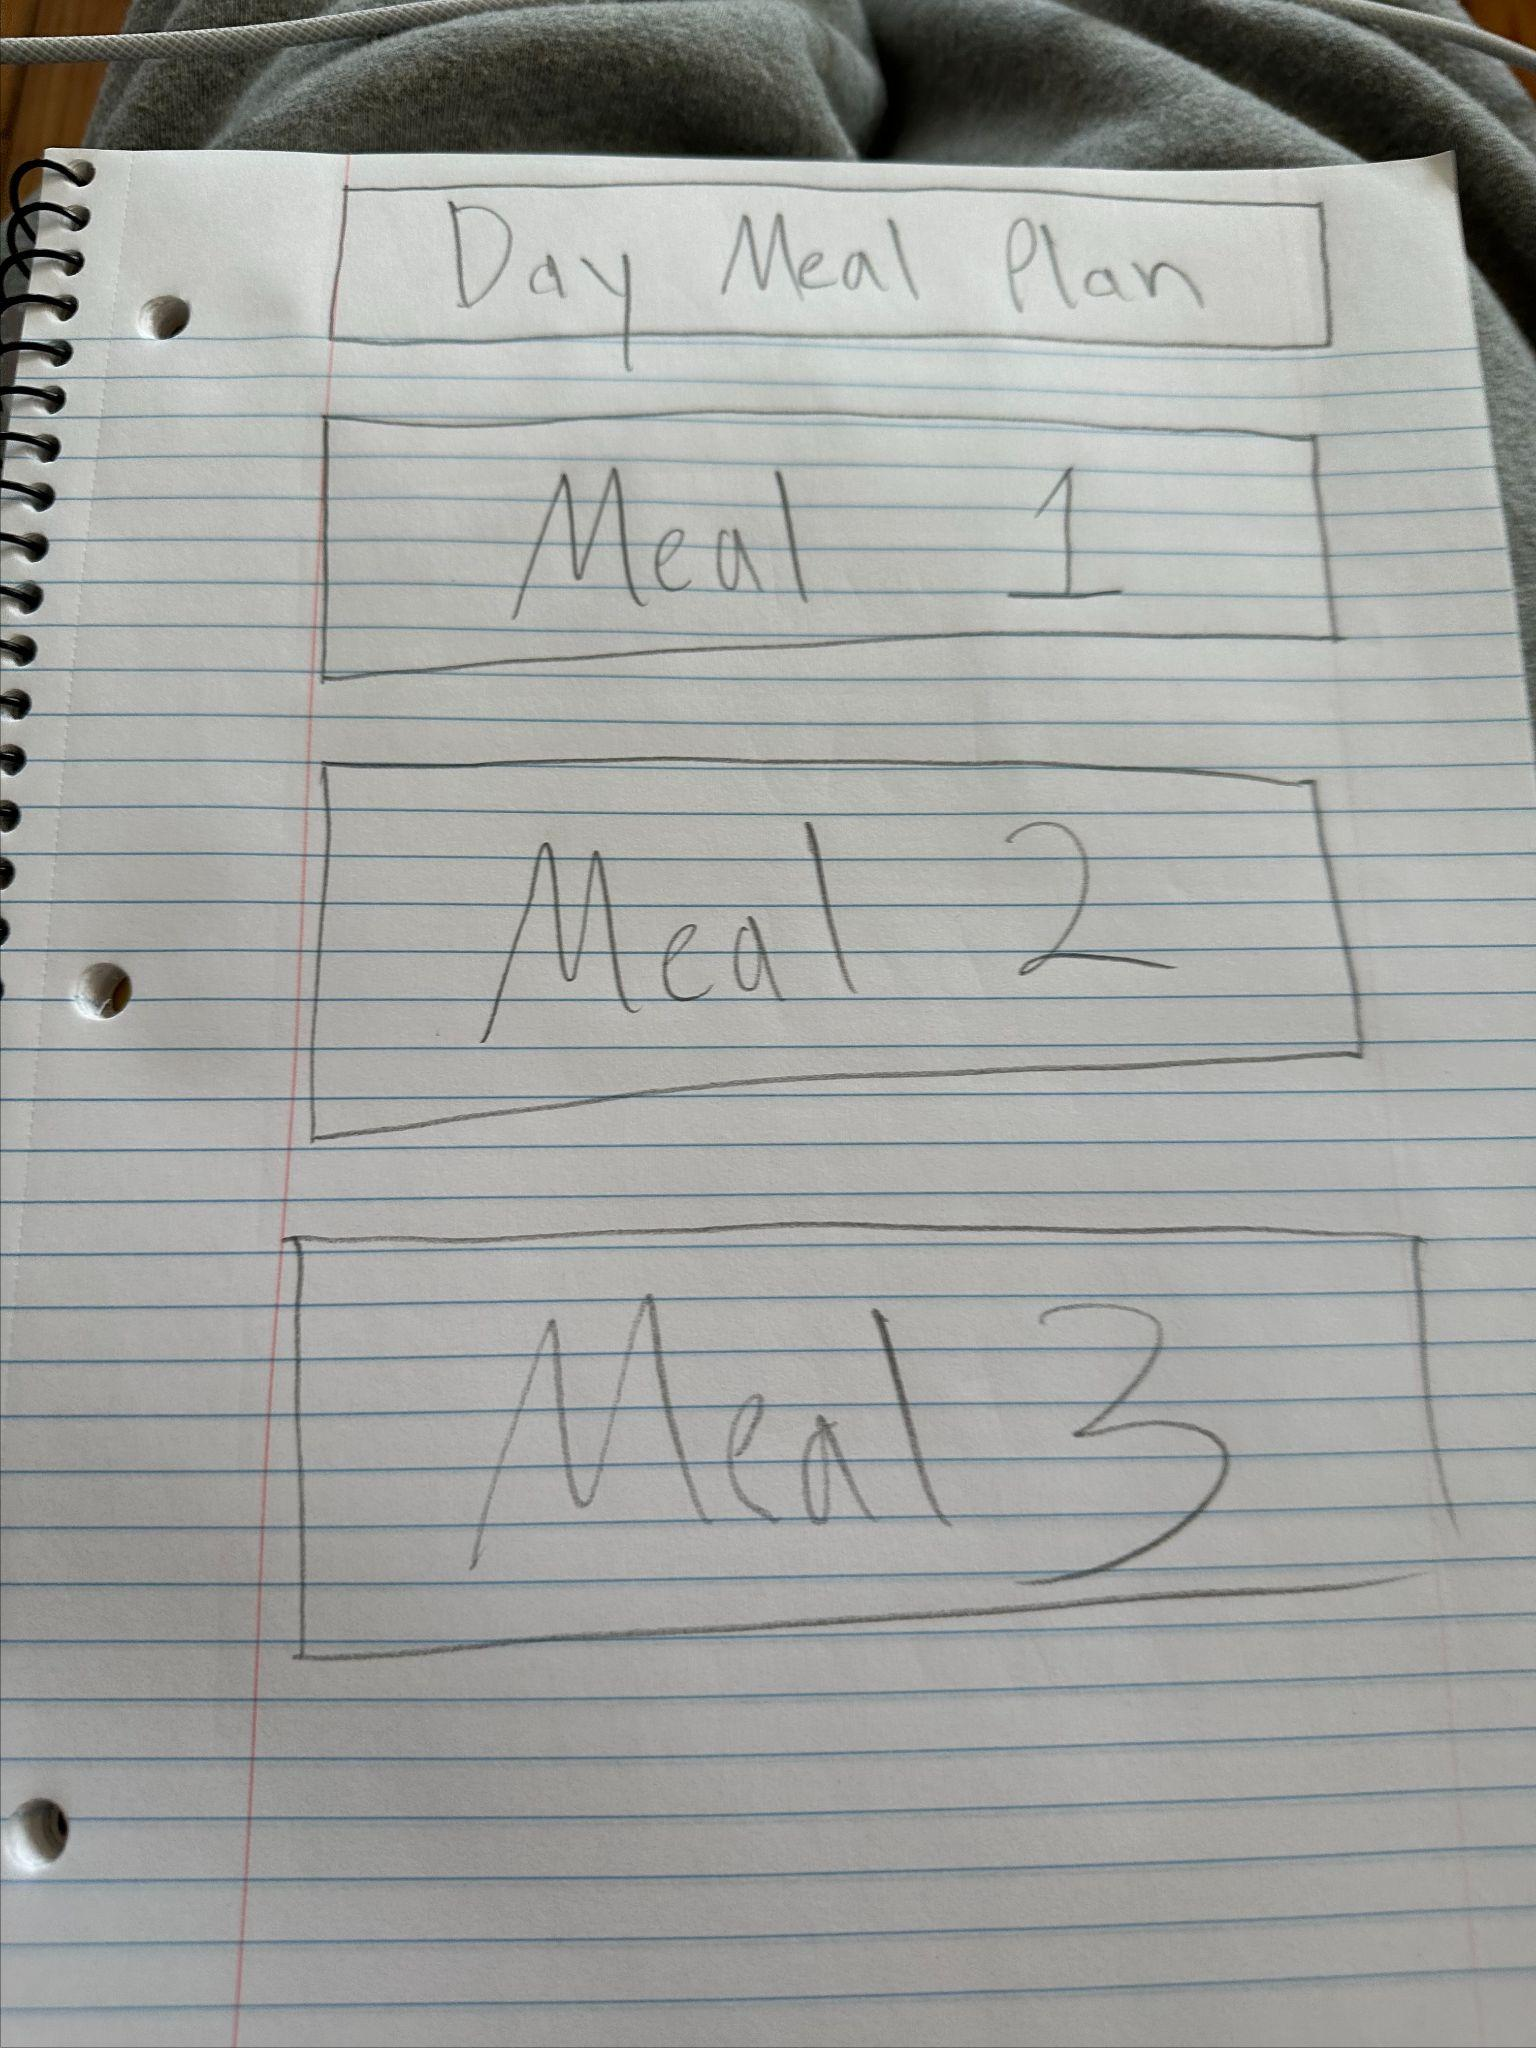 Day Meal Plan
Meal 1
Meal 2
Meal 3